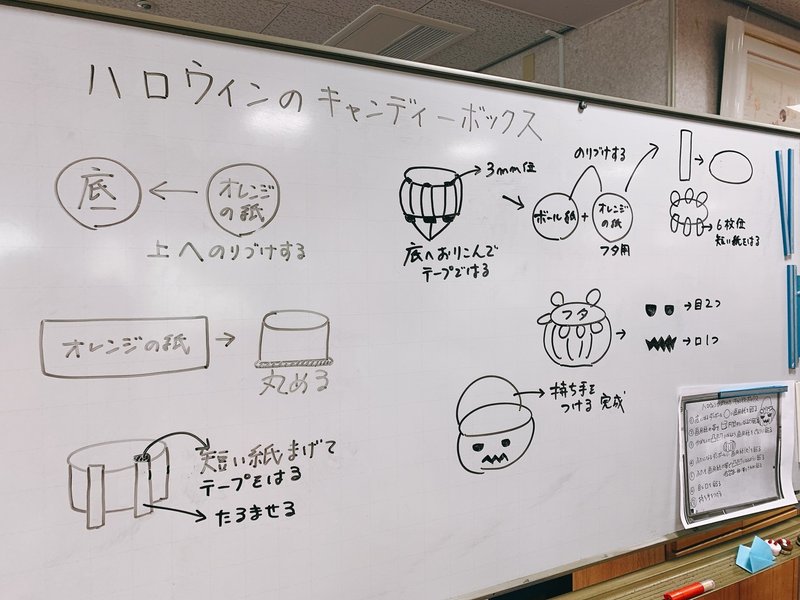 ハロウィンのキャンディーボックス
底
オレンジ
の紙
上へのりづけする
オレンジの紙
丸める
短い紙まげて
テープをはる
たるませる
3mm位
底へおりこんで
テープではる
のりづけする
ボール紙
+
オレンジ
の紙
フタ用
6枚位
短い紙をはる
フタ
目2つ
口1つ
持ち手を
つける 完成